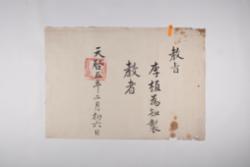 教旨
李植為知製
教者
天啓五年二月初六日